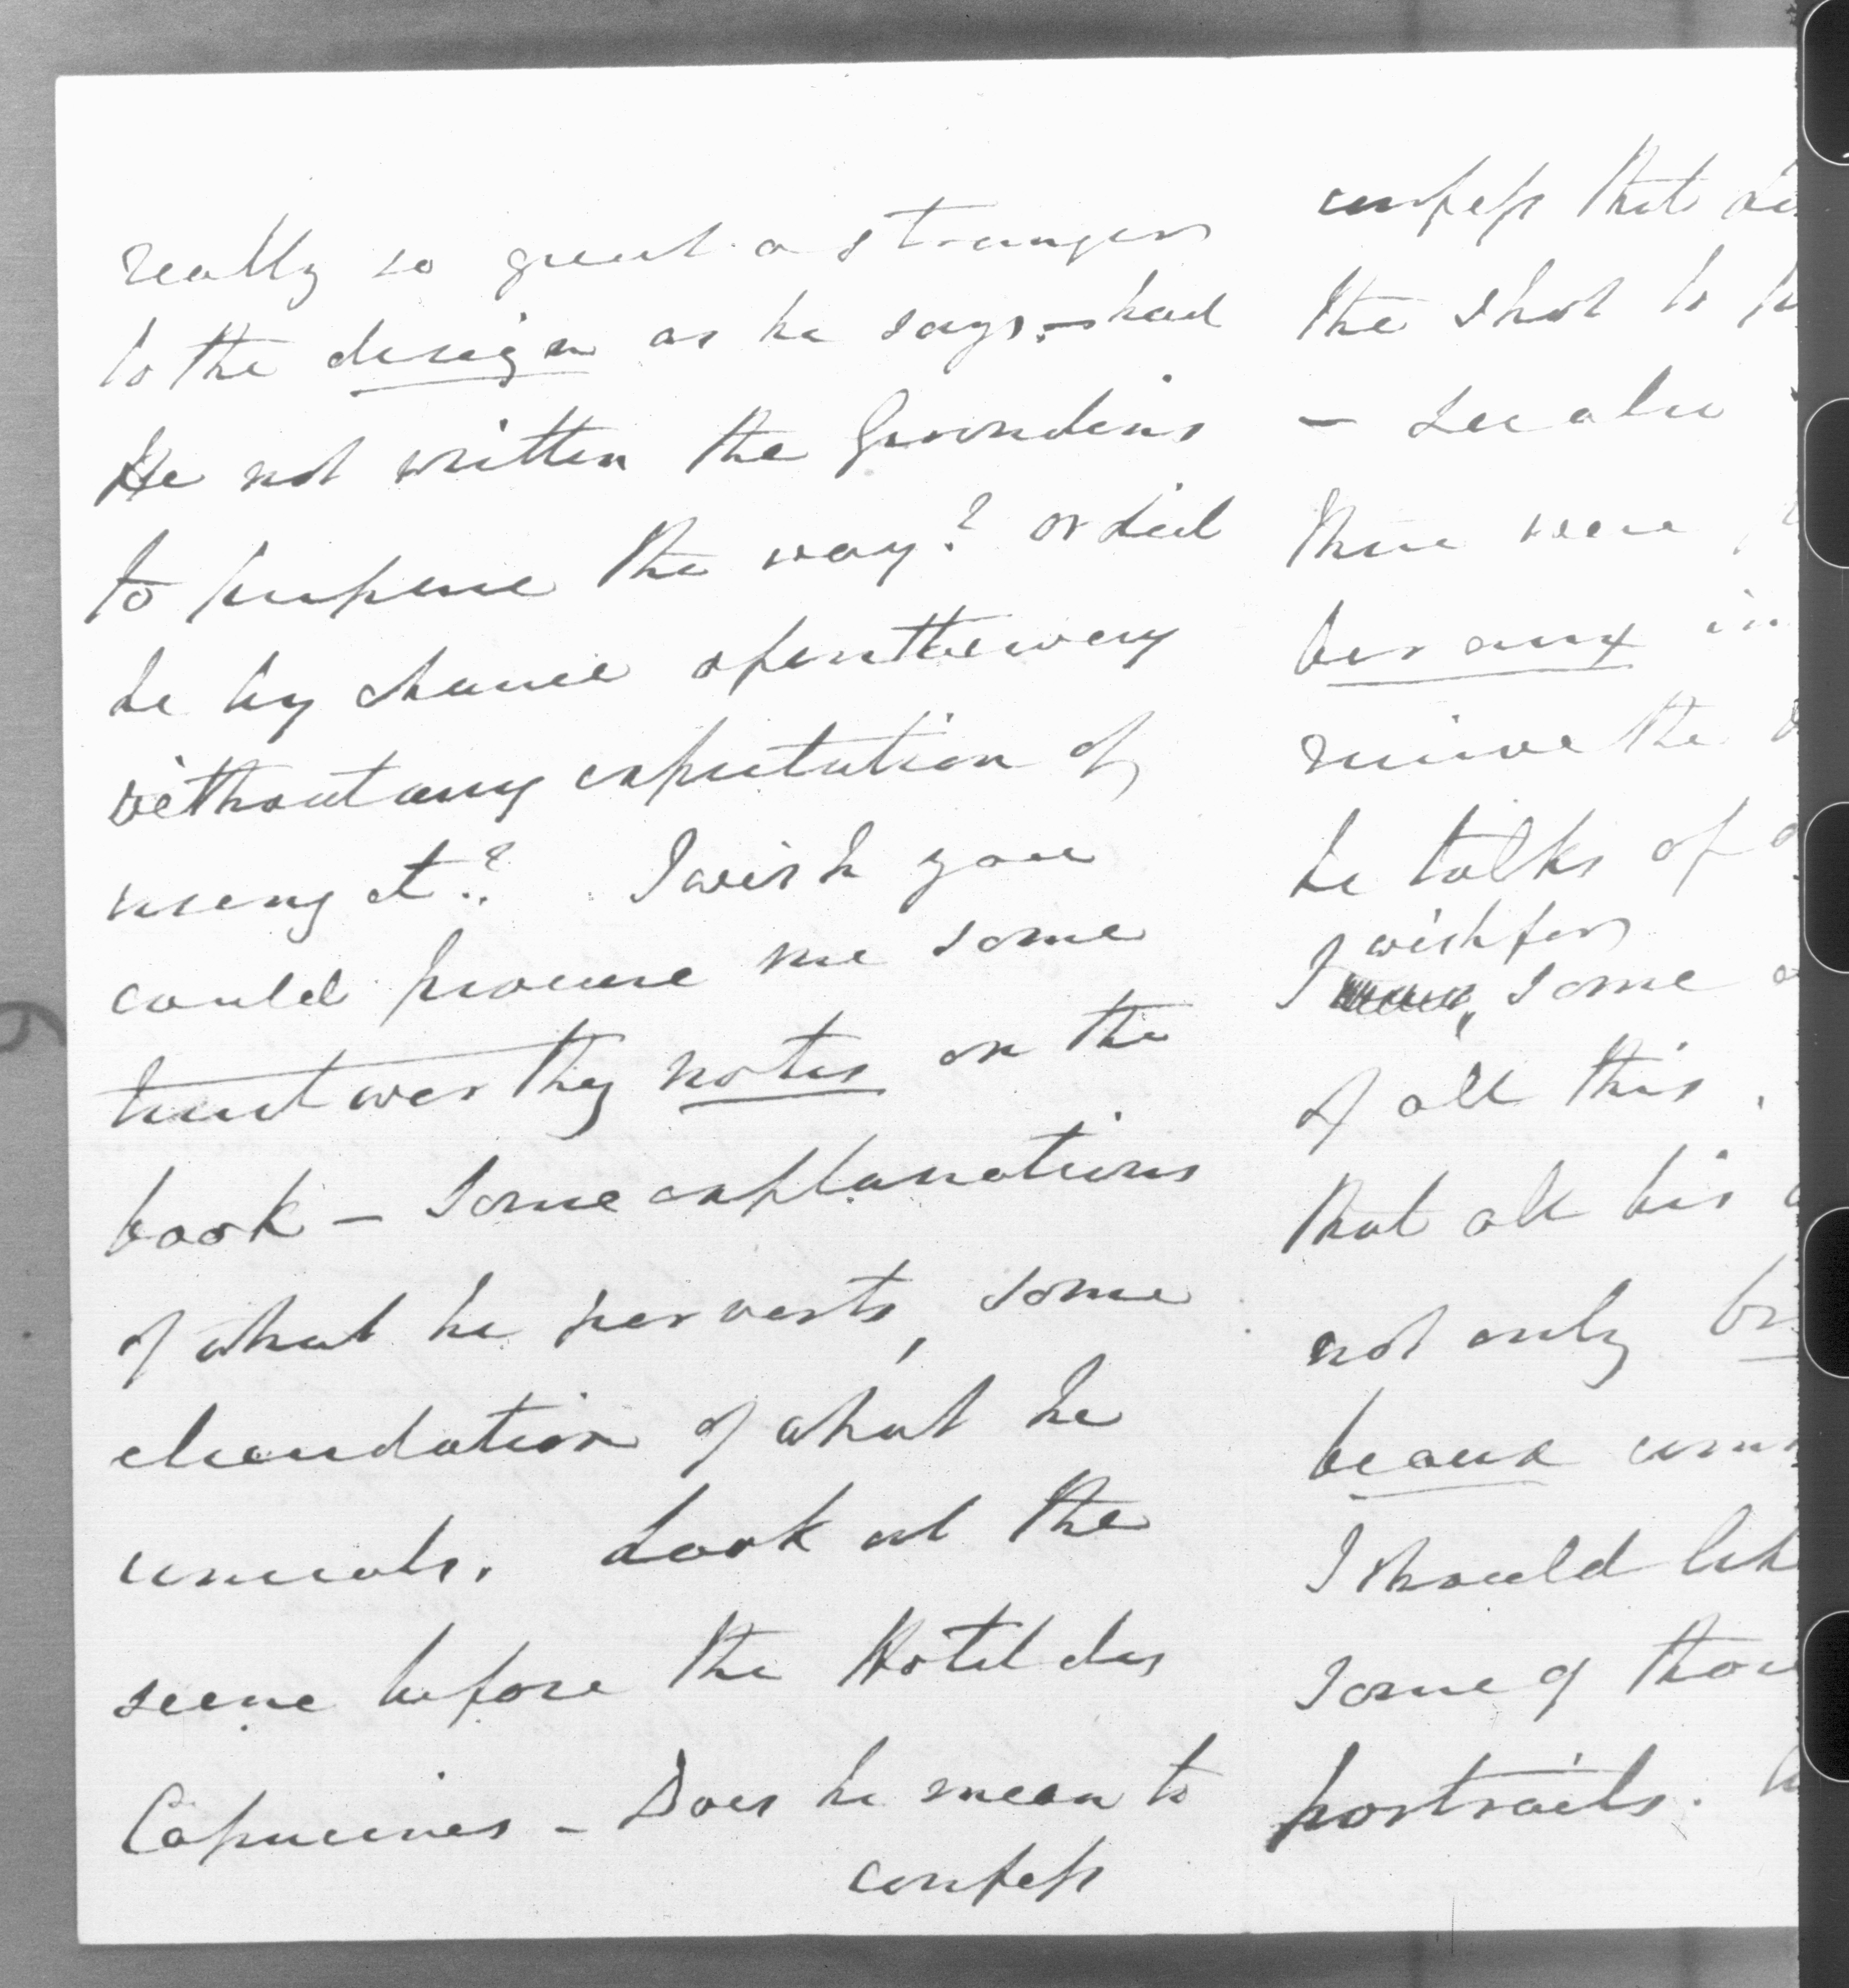 really so great a stranger
to the design as he says - had
He not written the Girondins
to prepare the way? or did
he by chance open the way
without any expectation of
using it? I wish you
could procure me some
trustworthy notes on the
book - some explanations
of what he perverts, some
elucidation of what he
conceals. Look at the
scene before the Hotel des
Capucines - Does he mean to
confess
confess that
the shot
- See also
there were
receive the
he talks of
wish for
I some
of all this,
that all his
not only
beaux
I should
some of
portraits.